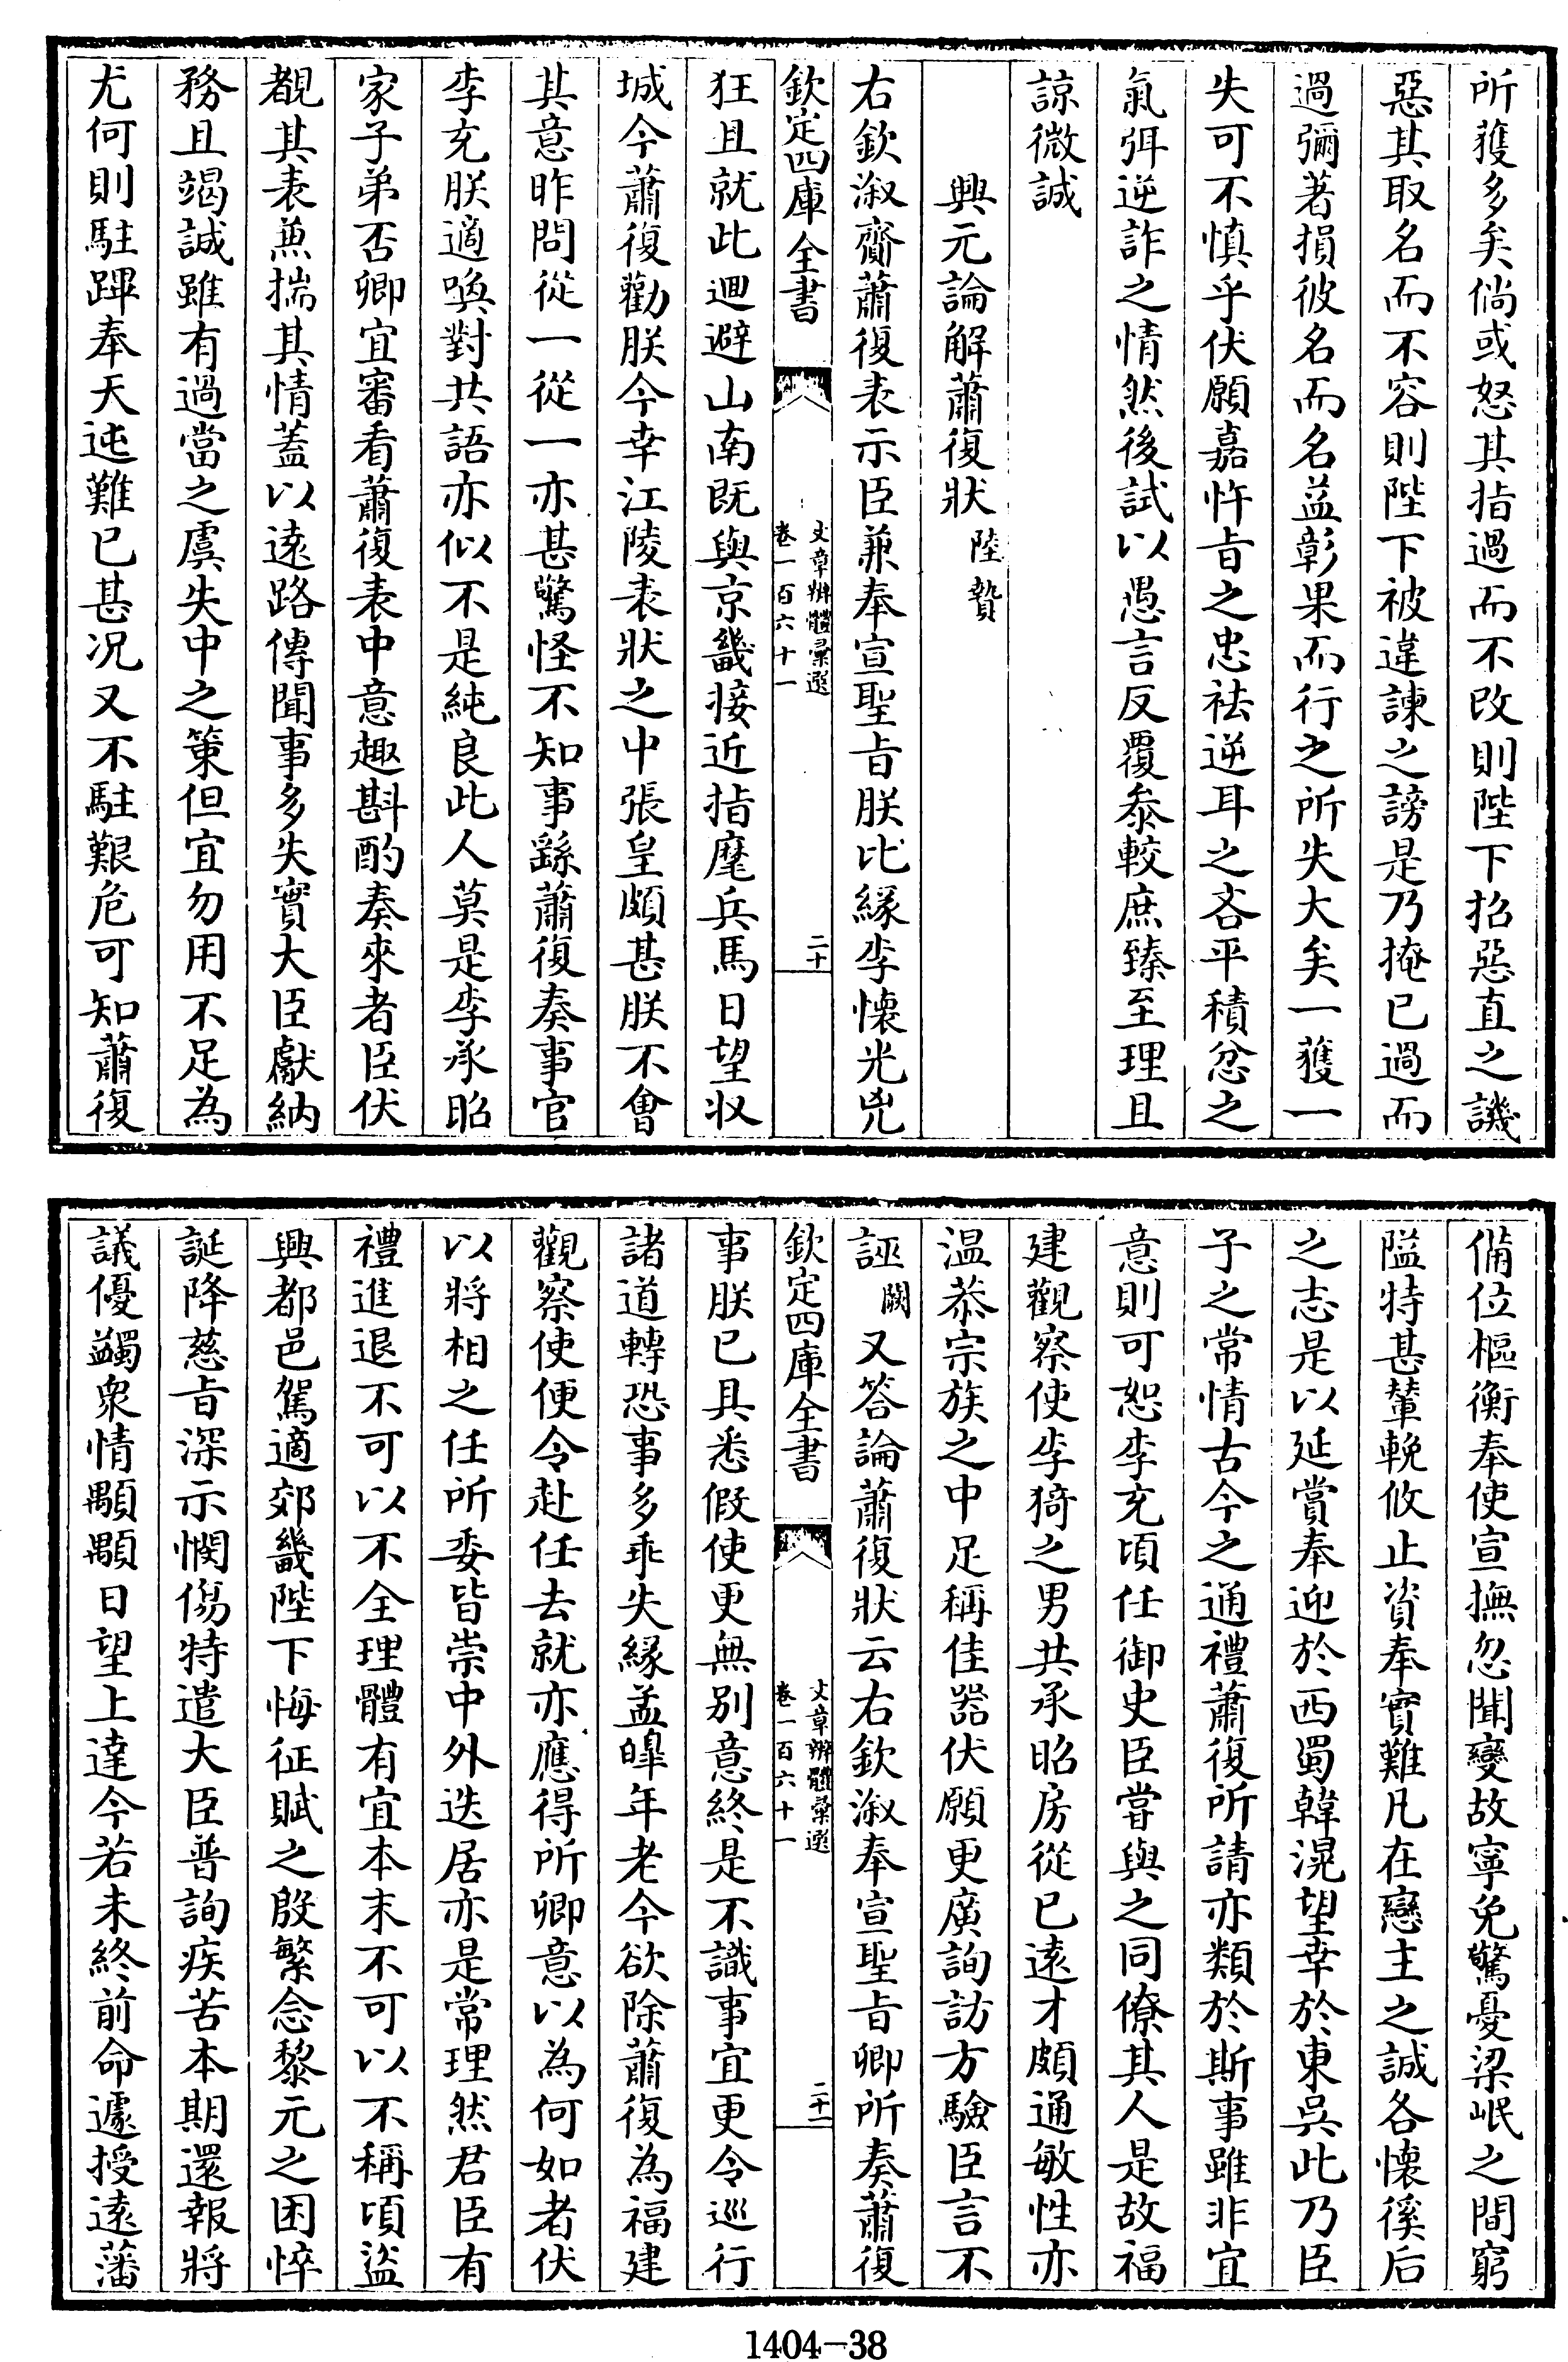 所獲多矣倘或怒其指過而不改則陛下招惡直之譏
惡其取名而不容則陛下被違諫之謗是乃掩已過而
過彌著損彼名而名益彰果而行之所失大矣一獲一
失可不慎乎伏願嘉忤旨之忠祛逆耳之吝平積忿之
氣弭逆詐之情然後試以愚言反覆叅較庶臻至理且
諒微誠
興元論解蕭復狀 陸贄
右欽漵齎蕭復表示臣兼奉宣聖旨朕比緣李懷光兇
欽定四庫全書
文章辨體彙選
卷一百六十一
二十
狂且就此迴避山南既與京畿接近指麾兵馬日望收
城今蕭復勸朕今幸江陵表狀之中張皇頗甚朕不會
其意昨問從一從一亦甚驚怪不知事繇蕭復奏事官
李充朕適喚對共語亦似不是純良此人莫是李承昭
家子弟否卿宜審看蕭復表中意趣斟酌奏來者臣伏
覩其表兼揣其情蓋以遠路傳聞事多失實大臣獻納
務且竭誠雖有過當之虞失中之策但宜勿用不足為
尤何則駐蹕奉天迍難已甚况又不駐艱危可知蕭復
備位樞衡奉使宣撫忽聞變故寧免驚憂梁岷之間窮
隘特甚輦輓攸止資奉實難凡在戀主之誠各懷徯后
之志是以延賞奉迎於西蜀韓滉望幸於東吳此乃臣
子之常情古今之通禮蕭復所請亦類於斯事雖非宜
意則可恕李充頃任御史臣嘗與之同僚其人是故福
建觀察使李猗之男共承昭房從已遠才頗通敏性亦
溫恭宗族之中足稱佳器伏願更廣詢訪方驗臣言不
誣 闕 又答論蕭復狀云右欽漵奉宣聖旨卿所奏蕭復
欽定四庫全書
文章辨體彙選
卷一百六十一
二十一
事朕已具悉假使更無別意終是不識事宜更令巡行
諸道轉恐事多乖失緣孟皥年老今欲除蕭復為福建
觀察使便令赴任去就亦應得所卿意以為何如者伏
以將相之任所委皆崇中外迭居亦是常理然君臣有
禮進退不可以不全理體有宜本末不可以不稱頃盜
興都邑駕適郊畿陛下悔征賦之殷繁念黎元之困悴
誕降慈旨深示憫傷特遣大臣普詢疾苦本期還報將
議優蠲衆情顒顒日望上達今若未終前命遽授遠藩
1404—38